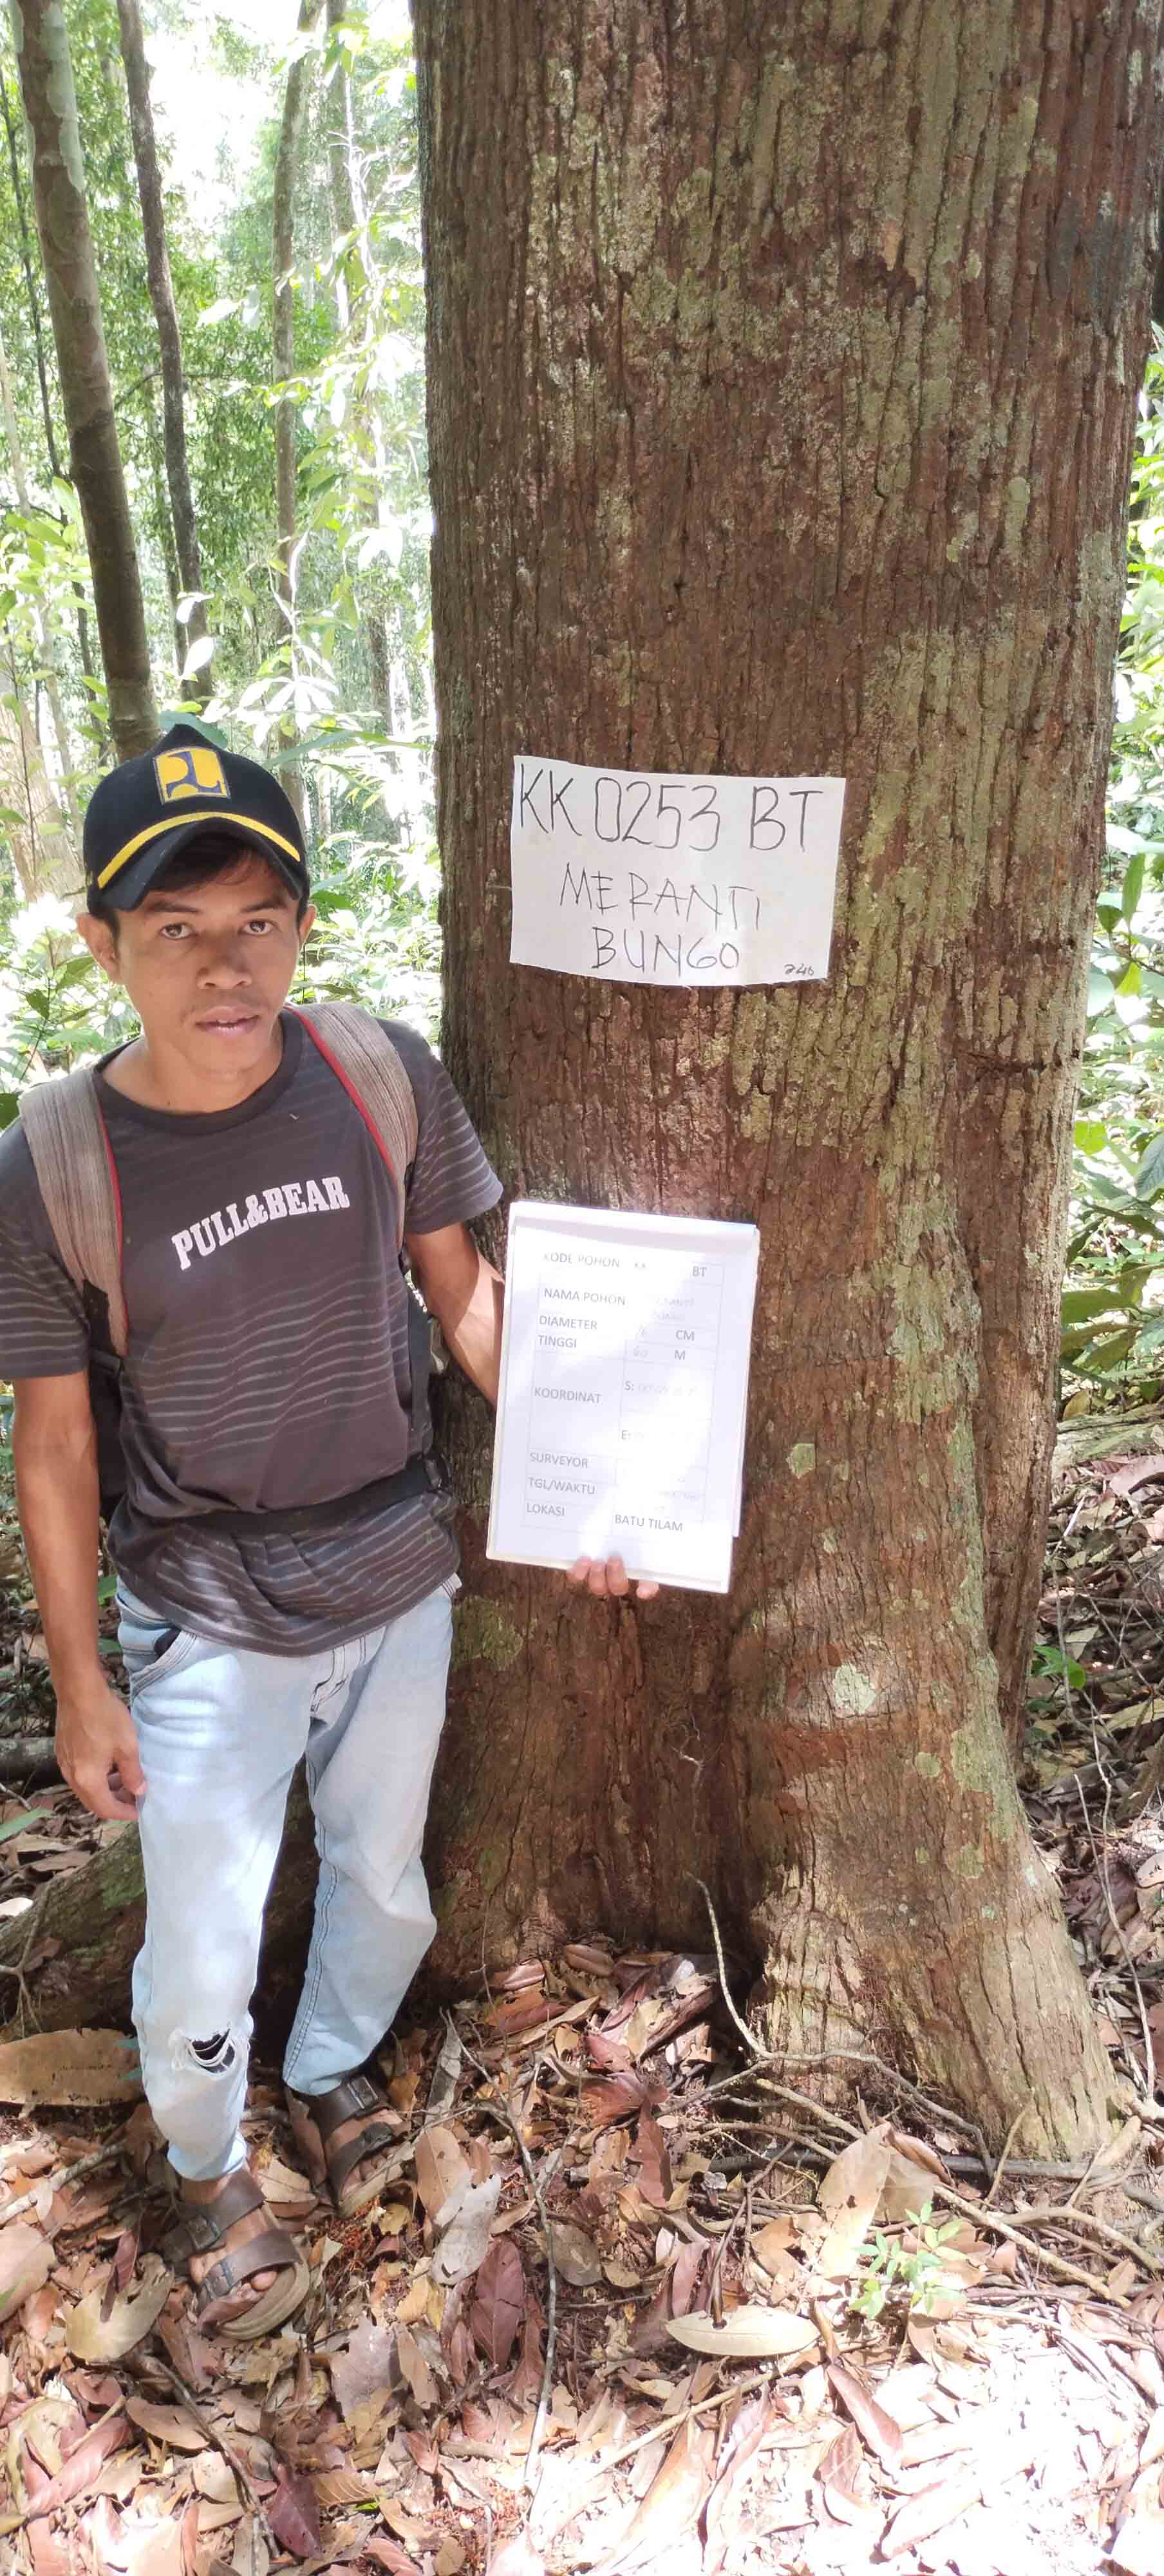 KK 0253 BT
MERANTI
BUNGO
246
PULL&BEAR
KODE POHON KK BT
NAMA POHON
DIAMETER CM
TINGGI 60 M
KOORDINAT
S:
E:
SURVEYOR
TGL/WAKTU
LOKASI BATU TILAM